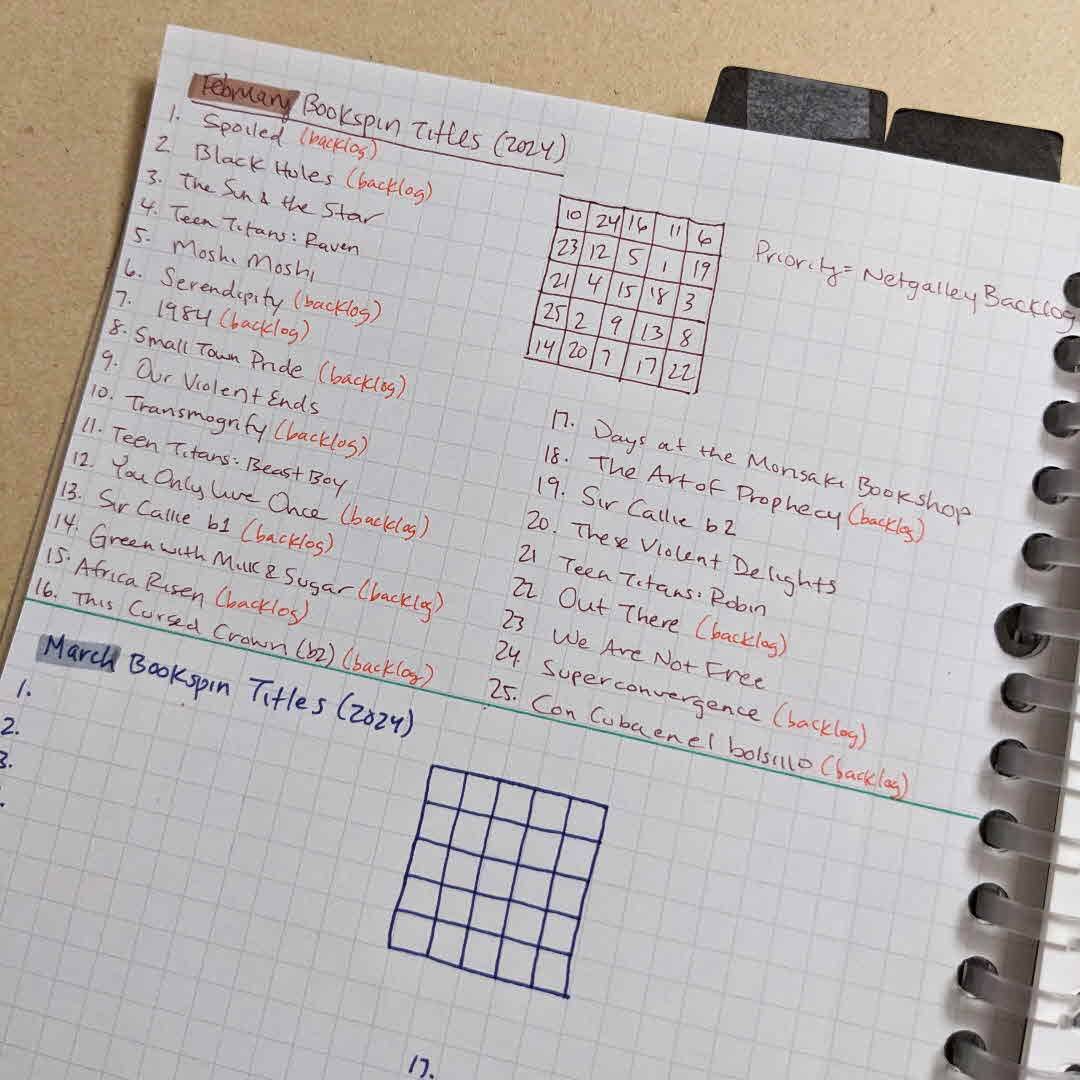 February Bookspin Titles (2024)
1. Spoiled (backlog)
2 Black Holes (backlog)
3. The Sun & the Star
4. Teen Titans: Raven
5. Moshi Moshi
6. Serendipity (backlog)
7. 1984 (backlog)
8. Small Town Pride (backlog)
9. Our Violent Ends
10. Transmogrify (backlog)
11. Teen Titans: Beast Boy
12. You Only Live Once (backlog)
13. Sir Callie b1 (backlog)
14. Green with Milk & Sugar (backlog)
15. Africa Risen (backlog)
16. This Cursed Crown (b2) (backlog)
10 24 16 11 6
23 12 5 1 19
21 4 15 18 3
25 2 9 13 8
14 20 7 17 22
Priority = Netgalley Backlog
17. Days at the Morisaki Bookshop
18. The Art of Prophecy (backlog)
19. Sir Callie b2
20. These Violent Delights
21 Teen Titans: Robin
22 Out There (backlog)
23 We Are Not Free
24. Superconvergence (backlog)
25. Con Cuba en el bolsillo (backlog)
March Bookspin Titles (2024)
1.
2.
3.
17.